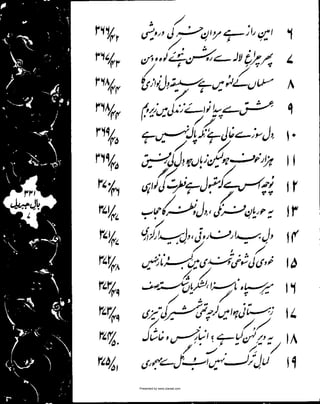 ۶ امینِ راز ہے مردانِ حُر کی درویشی ۳۶۶/۴۲
۷ پھر چراغِ لالہ سے روشن ہوئے کوہ و دمن ۳۶۷/۴۳
۸ مسلماں کے لہو میں ہے سلیقہ دل نوازی کا ۳۶۸/۴۴
۹ عشق سے پیدا نوائے زندگی میں زیر و بم ۳۶۸/۴۴
۱۰ دل سوز سے خالی ہے نگہ پاک نہیں ہے ۳۶۹/۴۵
۱۱ ہزار خوف ہو لیکن زباں ہو دل کی رفیق ۳۶۹/۴۵
۱۲ پوچھ اس سے کہ مقبول ہے فطرت کی گواہی ۳۷۰/۴۶
۱۳ یہ حوریانِ فرنگی، دل و نظر کا حجاب ۳۷۱/۴۷
۱۴ دلِ بیدار فاروقی، دلِ بیدار کراری ۳۷۱/۴۷
۱۵ خودی کی شوخی و تندی میں کبر و ناز نہیں ۳۷۲/۴۸
۱۶ میرِ سپاہ ناسزا، لشکریاں شکستہ صف ۳۷۳/۴۹
۱۷ زمستانی ہوا میں گرچہ تھی شمشیر کی تیزی ۳۷۳/۴۹
۱۸ یہ دیرِ کہن کیا ہے؟ انبارِ خس و خاشاک ۳۷۴/۵۰
۱۹ کمالِ ترک نہیں آب و گل سے مہجوری ۳۷۵/۵۱
۳۳۱
بالِ جبریل
۷